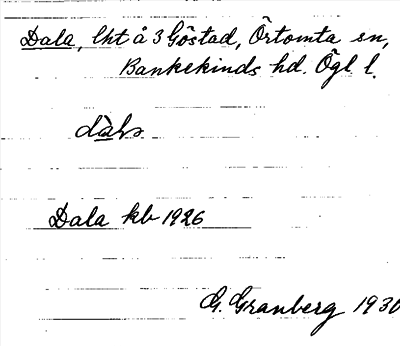 Dala, lht å 3 Göstad, Örtomta sn,
Bankekinds hd. Ögl l.
Dala kb 1926
G. Granberg 1930